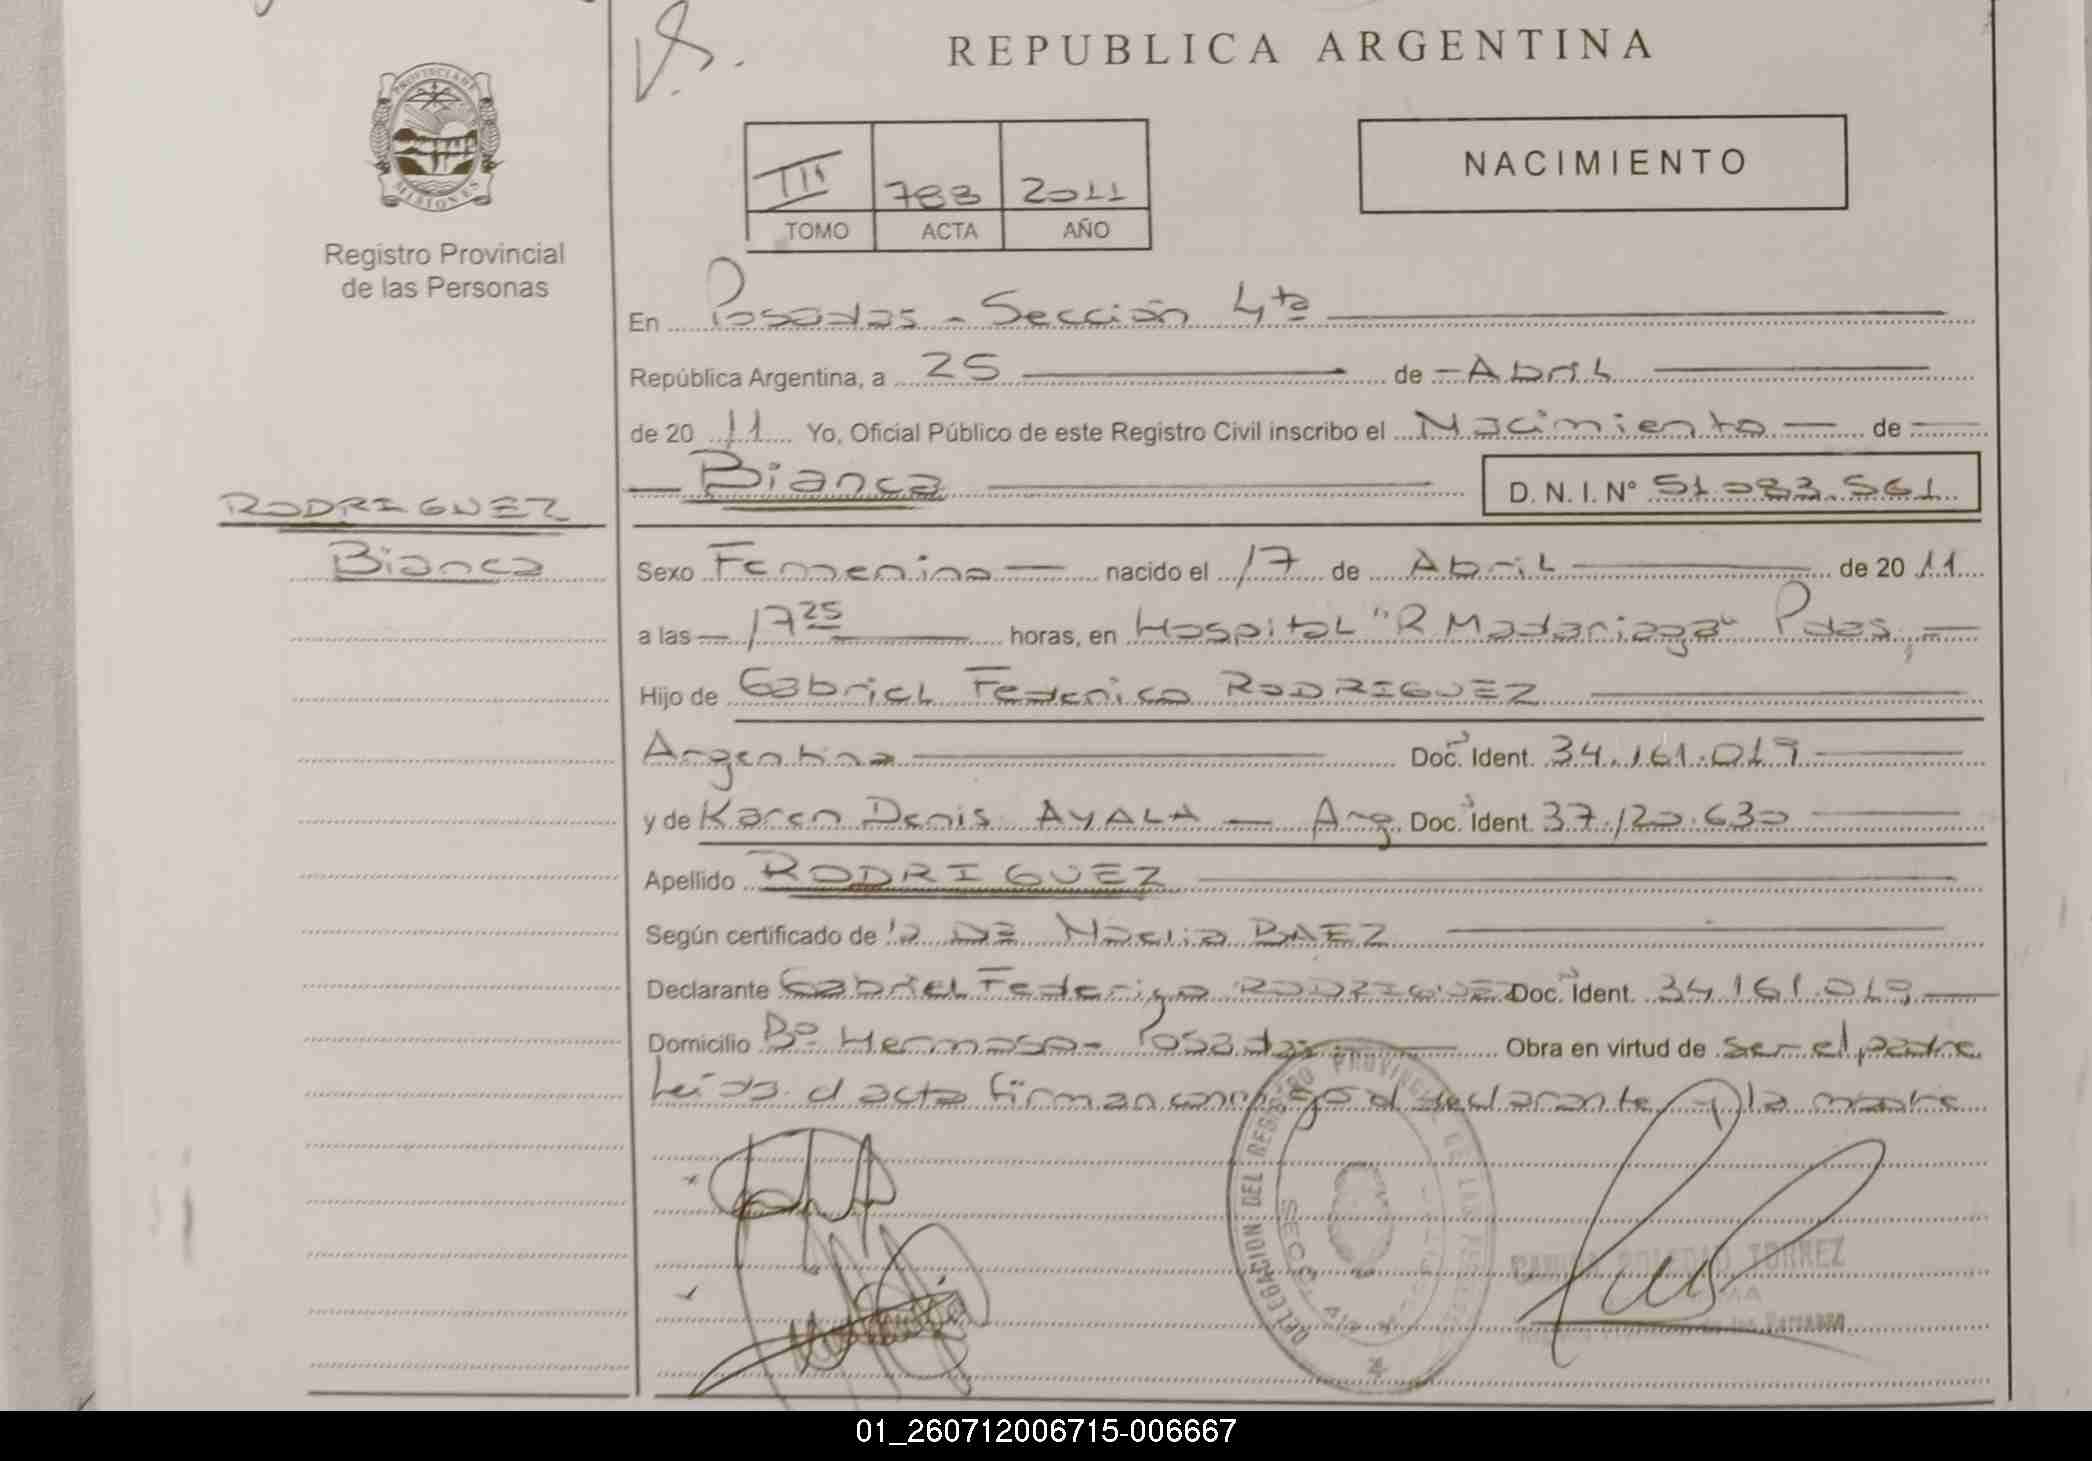 REPUBLICA ARGENTINA
PROVINCIA DE
MISIONES
Registro Provincial
de las Personas
III 783 2011
TOMO ACTA AÑO
NACIMIENTO
En Posadas - Sección 4ta
República Argentina, a 25 de Abril
de 20 11 Yo, Oficial Público de este Registro Civil inscribo el Nacimiento de
Bianca D. N. I. Nº 51.083.561
RODRIGUEZ
Bianca
Sexo Femenino nacido el 17 de Abril de 20 11
a las 17 25 horas, en Hospital "R Madariaga" Pdas,
Hijo de Gabriel Federico RODRIGUEZ
Argentina Doc. Ident. 34.161.019
y de Karen Denis AYALA - Arg. Doc. Ident. 37.120.630
Apellido RODRIGUEZ
Según certificado de BAEZ
Declarante Gabriel Federico RODRIGUEZ Doc. Ident. 34.161.019
Domicilio Bº Hermoso - Posadas Obra en virtud de ser el padre
Leida el acta firman conmigo el declarante y la madre
DELEGACION DEL REGISTRO PROVINCIAL DE LAS PERSONAS
SOLEDAD TORREZ
01_260712006715-006667